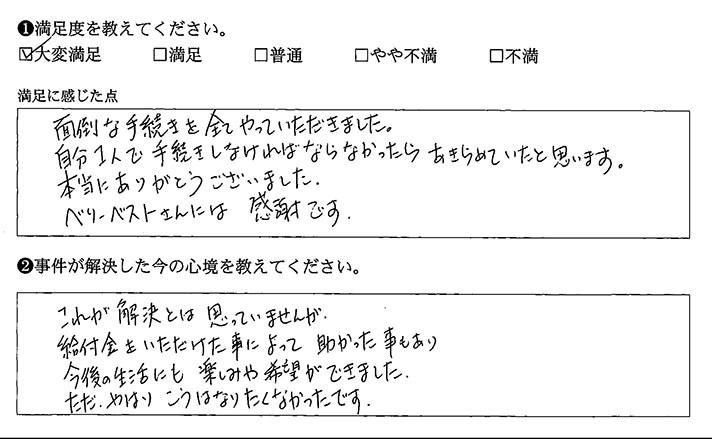 ❶満足度を教えてください。
☑大変満足 □満足 □普通 □やや不満 □不満
満足に感じた点
面倒な手続きを全てやっていただきました。
自分1人で手続きしなければならなかったらあきらめていたと思います。
本当にありがとうございました.
ベリーベストさんには 感謝です.
❷事件が解決した今の心境を教えてください。
これが解決とは思っていませんが.
給付金をいただけた事によって助かった事もあり
今後の生活にも楽しみや希望ができました.
ただ.やはりこうはなりたくなかったです.